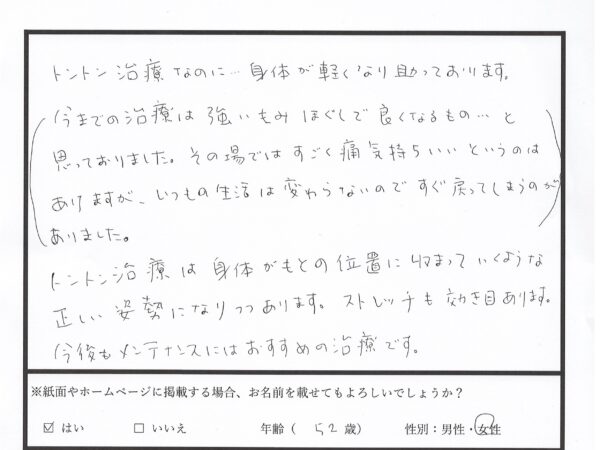 トントン治療なのに…身体が軽くなり助っております。
(今までの治療は強いもみほぐしで良くなるもの…と
思っておりました。その場ではすごく痛気持ちいいというのは
ありますが、いつもの生活は変わらないのですぐ戻ってしまうのが
ありました。)
トントン治療は身体がもとの位置に収まっていくような
正しい姿勢になりつつあります。ストレッチも効き目あります。
今後もメンテナンスにはおすすめの治療です。
※紙面やホームページに掲載する場合、お名前を載せてもよろしいでしょうか？
☑ はい □ いいえ 年齢（ 52 歳） 性別：男性・女性